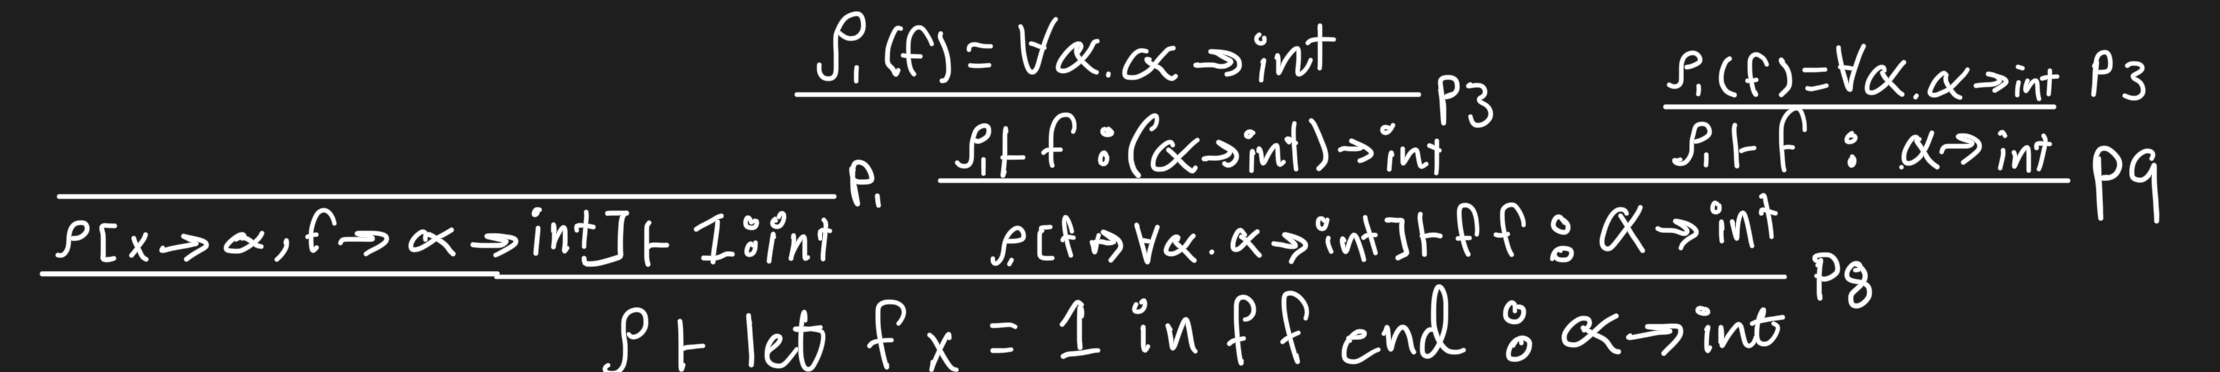 ρ₁(f) = ∀α.α → int
ρ₁(f) = ∀α.α → int p3
p3
ρ₁ ⊢ f : (α → int) → int
ρ₁ ⊢ f : α → int
p₁
p9
ρ[x → α, f → α → int] ⊢ 1 : int
ρ₁[f ↦ ∀α.α → int] ⊢ f f : α → int
p8
ρ ⊢ let f x = 1 in f f end : α → int